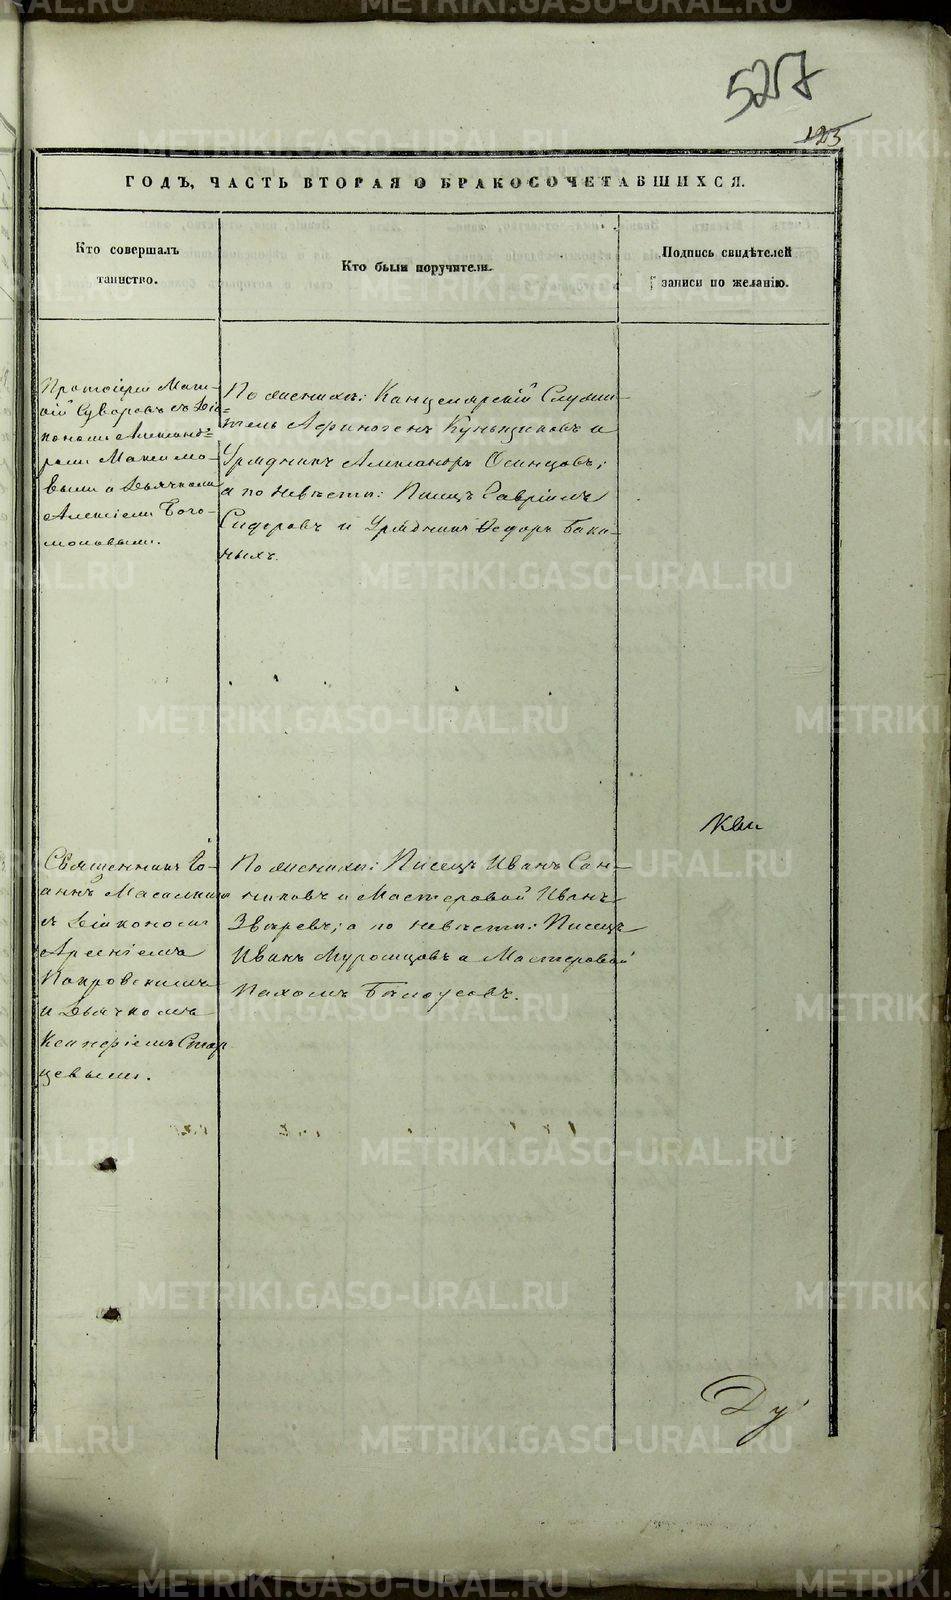 527
125
ГОДЪ, ЧАСТЬ ВТОРАЯ О БРАКОСОЧЕТАВШИХСЯ.
Кто совершалъ
таинство.
Кто были поручители.
Подпись свидѣтелей
записи по желанію.
Протоіерей Мат-
ѳій Суворовъ съ Діа-
кономъ Александ-
ромъ Максимо-
вымъ и Дьячкомъ
Алексѣемъ Бого-
моловымъ.
По женихѣ: Канцелярскій Служи-
тель Афиногенъ Кунщиковъ и
Урядникъ Александръ Осинцовъ;
а по невѣстѣ: Писецъ Гавріилъ
Сидоровъ и Урядникъ Ѳедоръ Бака-
ныхъ.
Священникъ Іо-
аннъ
съ Діакономъ
Арсеніемъ
Покровскимъ
и Дьячкомъ
Ксенофіемъ Стар
цевымъ.
По женихѣ: Писецъ Иванъ Сан-
никовъ и Мастеровой Иванъ
Звѣревъ; а по невѣстѣ: Писецъ
Иванъ Муромцовъ и Мастеровой
Пахомъ Бѣлоусовъ.
Ду
METRIKI.GASO-URAL.RU